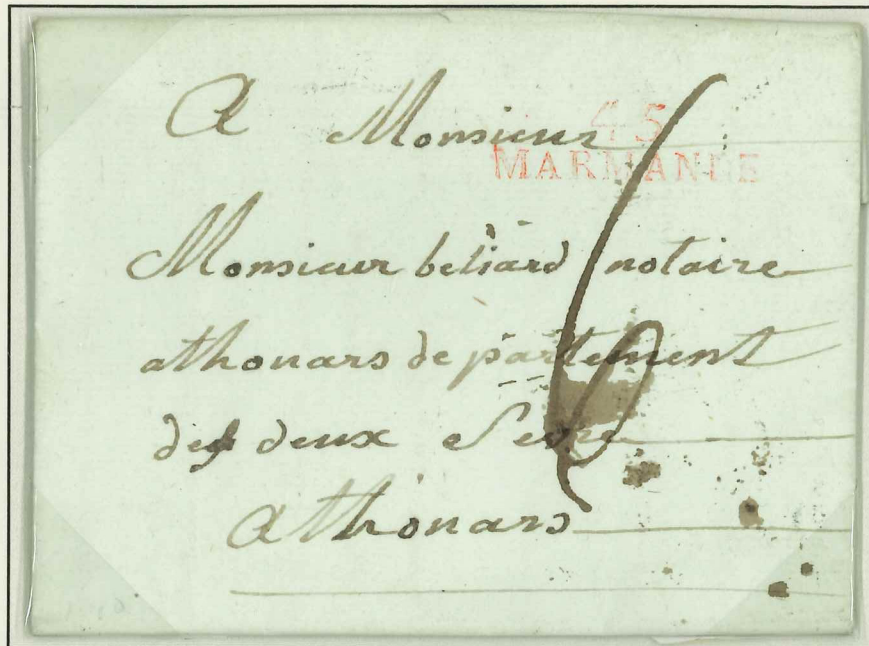 A Monsieur
45
MARMANDE
Monsieur beliard notaire
athouars departement
des deux Sevre
Athouars
6